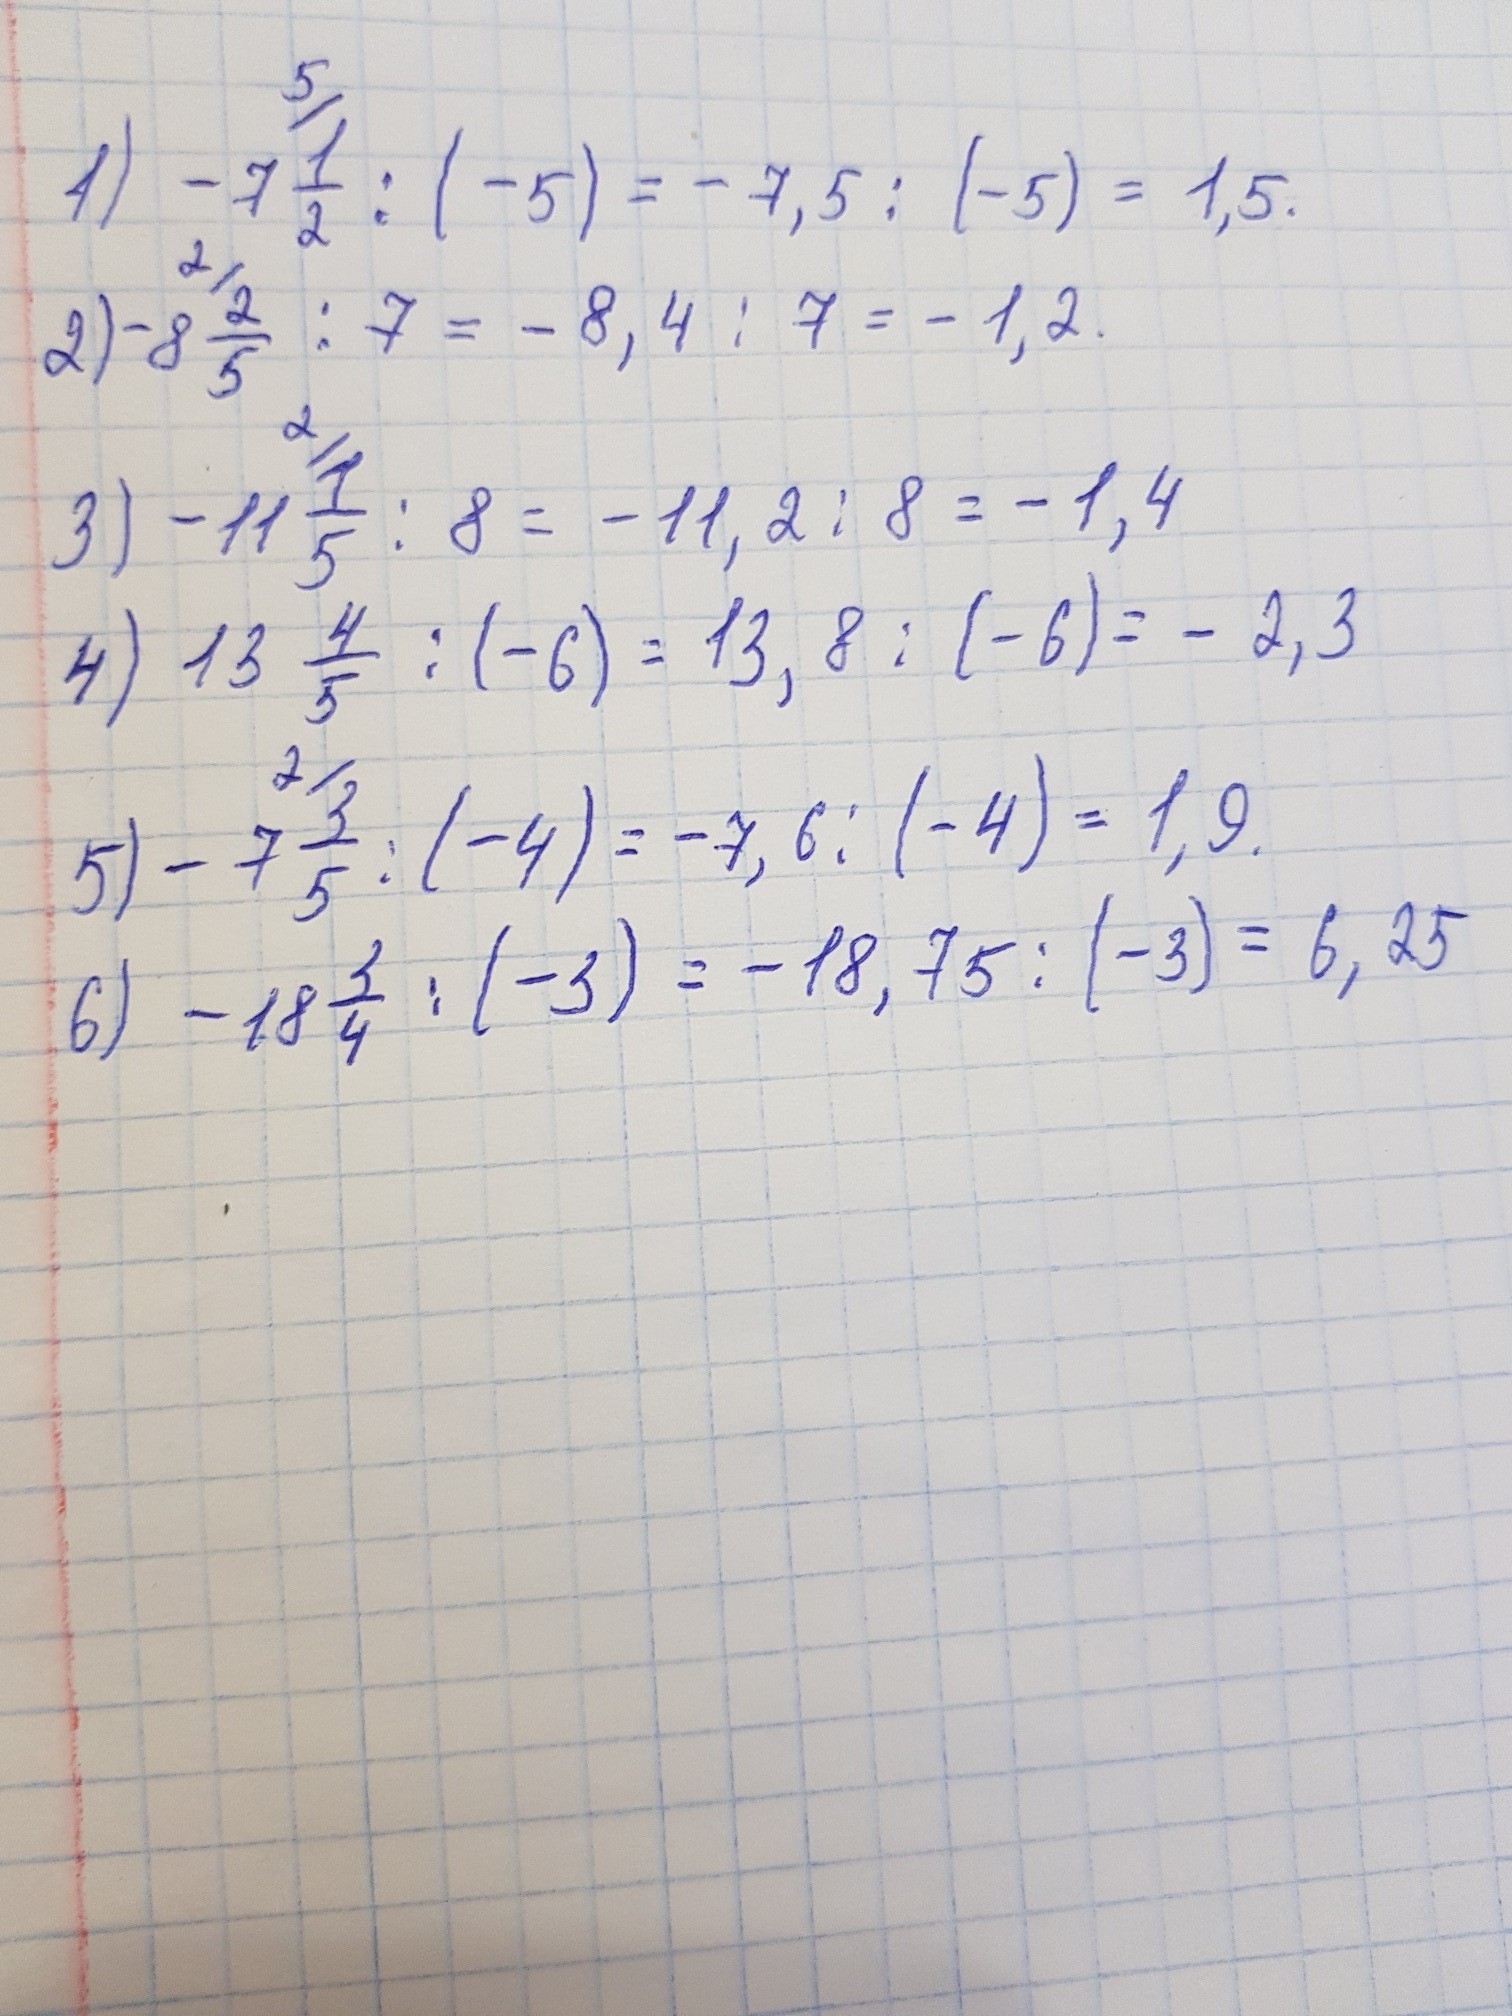 1) -7 5/ 1/2 : (-5) = -7,5 : (-5) = 1,5.
2) -8 2/ 2/5 : 7 = -8,4 : 7 = -1,2.
3) -11 2/ 1/5 : 8 = -11,2 : 8 = -1,4
4) 13 4/5 : (-6) = 13,8 : (-6) = -2,3
5) -7 2/ 3/5 : (-4) = -7,6 : (-4) = 1,9.
6) -18 3/4 : (-3) = -18,75 : (-3) = 6,25